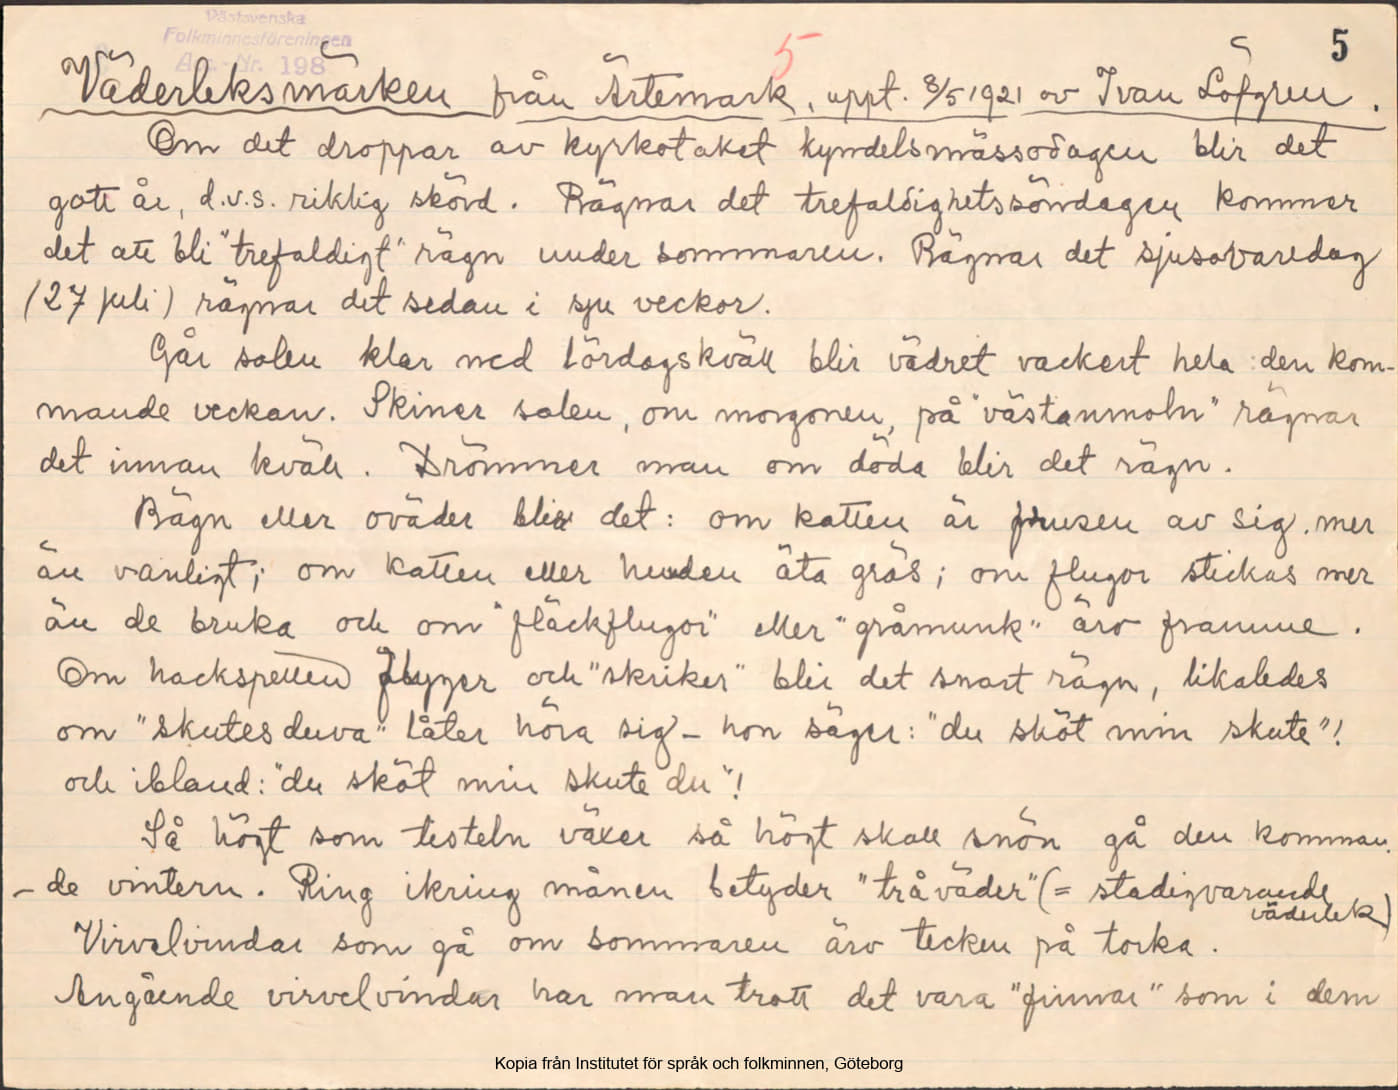 Västsvenska
Folkminnesföreningen
Acc.-Nr. 198
5
5
Väderleksmärken från Ärtemark, uppt. 8/5 1921 av Ivan Löfgren.
Om det droppar av kyrkotaket kyndelsmässodagen blir det
gott år, d.v.s. riklig skörd. Rägnar det trefaldighetssöndagen kommer
det att bli "trefaldigt" rägn under sommaren. Rägnar det sjusovaredag
(27 juli) rägnar det sedan i sju veckor.
Går solen klar ned lördagskväll blir vädret vackert hela den kom-
mande veckan. Skiner solen, om morgonen, på "västanmoln" rägnar
det innan kväll. Drömmer man om döda blir det rägn.
Rägn eller oväder blir det: om katten är frusen av sig mer
än vanligt; om katten eller hunden äta gräs; om flugor stickas mer
än de bruka och om "fläckflugor" eller "gråmunk" äro framme.
Om hackspetten flyger och "skriker" blir det snart rägn, likaledes
om "skutesduva" låter höra sig - hon säger: "du sköt min skute"!
och ibland: "du sköt min skute du"!
Så högt som testeln växer så högt skall snön gå den komman-
-de vintern. Ring ikring månen betyder "tråväder" (= stadigvarande
väderlek)
Virvelvindar som gå om sommaren äro tecken på torka.
Angående virvelvindar har man trott det vara "finnar" som i dem
Kopia från Institutet för språk och folkminnen, Göteborg